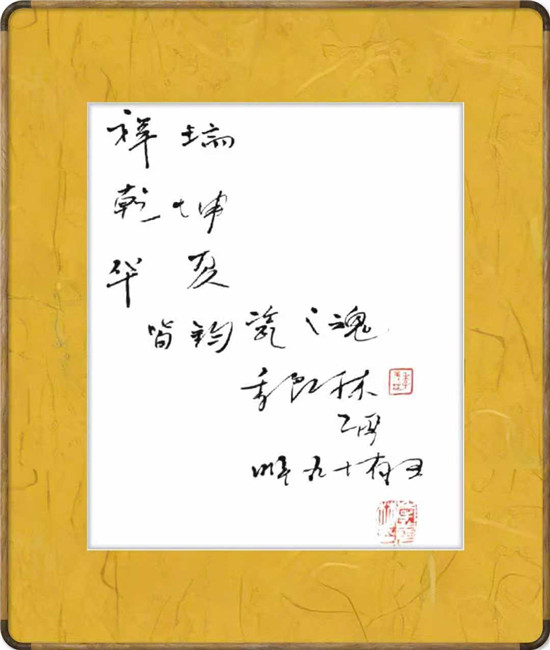 祥瑞
乾坤
华夏
皆钧瓷之魂
季羡林
乙酉
时年九十有五